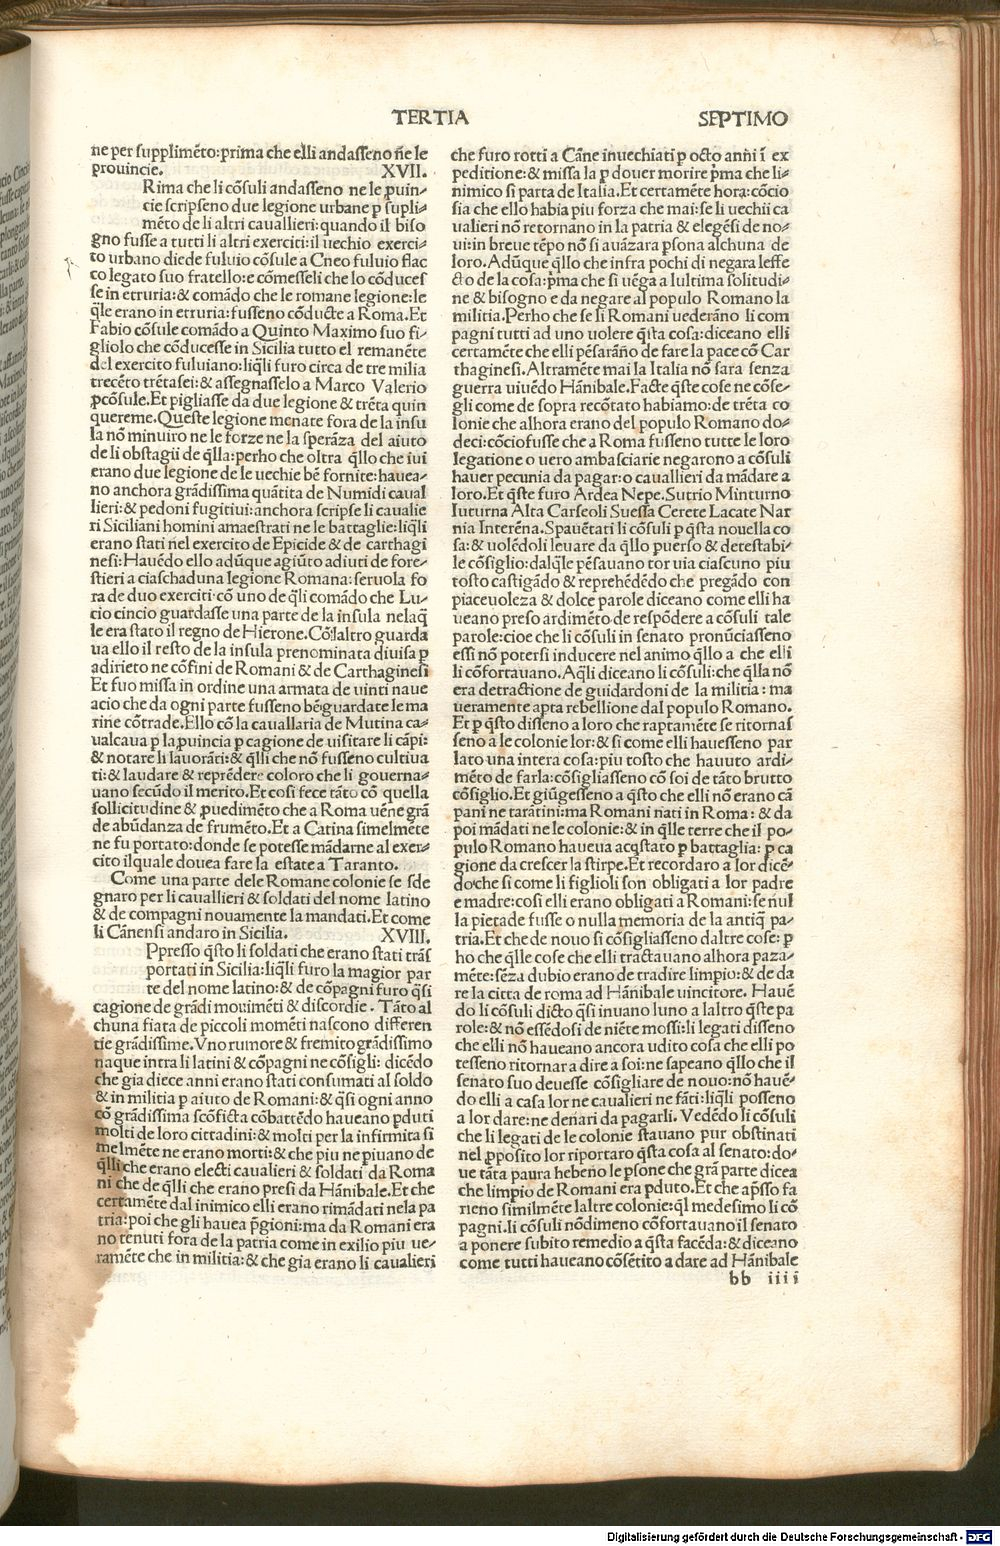 TERTIA SEPTIMO
ne per supplimẽto:prima che elli andasseno ñe le
prouincie. XVII.
Rima che li cõsuli andasseno ne le ꝓuin⸗
cie scripseno due legione urbane p supli⸗
mẽto de li altri cauallieri:quando il biso
gno fusse a tutti li altri exerciti:il uechio exerci⸗
to urbano diede fuluio cõsule a Cneo fuluio flac
co legato suo fratello:e cõmesseli che lo cõduces
se in etruria:& comãdo che le romane legione:le
q̃le erano in etruria:fusseno cõducte a Roma.Et
Fabio cõsule comãdo a Quinto Maximo suo fi⸗
gliolo che cõducesse in Sicilia tutto el remanẽte
del exercito fuluiano:liq̃li furo circa de tre milia
trecẽto trẽtasei:& assegnasselo a Marco Valerio
ꝓcõsule.Et pigliasse da due legione & trẽta quin
quereme.Queste legione menate fora de la insu
la nõ minuiro ne le forze ne la sperãza del aiuto
de li obstagii de q̃lla:perho che oltra q̃llo che iui
erano due legione de le uechie bẽ fornite:hauea⸗
no anchora grãdissima quãtita de Numidi caual
lieri:& pedoni fugitiui:anchora scripse li caualie
ri Siciliani homini amaestrati ne le battaglie:liq̃li
erano stati nel exercito de Epicide & de carthagi
nesi:Hauẽdo ello adũque agiũto adiuti de fore⸗
stieri a ciaschaduna legione Romana:seruola fo
ra de duo exerciti:cõ uno de q̃li comãdo che Lu⸗
cio cincio guardasse una parte de la insula nelaq̃
le era stato il regno de Hierone.Cõ laltro guarda
ua ello il resto de la insula prenominata diuisa p
adirieto ne cõfini de Romani & de Carthaginesi
Et fuo missa in ordine una armata de uinti naue
acio che da ogni parte fusseno bẽ guardate le ma
rine cõtrade.Ello cõ la cauallaria de Mutina ca⸗
ualcaua p la ꝓuincia p cagione de uisitare li cãpi:
& notare li lauorãti:& q̃lli che nõ fusseno cultiua
ti:& laudare & reprẽdere coloro che li gouerna⸗
uano secũdo il merito.Et cosi fece tãto cõ quella
sollicitudine & ꝓuedimẽto che a Roma uẽne grã
de abũdanza de frumẽto.Et a Catina simelmẽte
ne fu portato:donde se potesse mãdarne al exer⸗
cito ilquale douea fare la estate a Taranto.
Come una parte dele Romane colonie se sde
gnaro per li cauallieri & soldati del nome latino
& de compagni nouamente la mandati.Et come
li Cãnensi andaro in Sicilia. XVIII.
Ppresso q̃sto li soldati che erano stati trãs
portati in Sicilia:liq̃li furo la magior par
te del nome latino:& de cõpagni furo q̃si
cagione de grãdi mouimẽti & discordie. Tãto al
chuna fiata de piccoli momẽti nascono differen
tie grãdissime.Vno rumore & fremito grãdissimo
naque intra li latini & cõpagni ne cõsigli: dicẽdo
che gia diece anni erano stati consumati al soldo
& in militia p aiuto de Romani:& q̃si ogni anno
cõ grãdissima scõficta cõbattẽdo haueano pduti
molti de loro cittadini:& molti per la infirmita si
melmẽte ne erano morti:& che piu ne piuano de
q̃lli che erano electi caualieri & soldati da Roma
ni che de q̃lli che erano presi da Hãnibale.Et che
certamẽte dal inimico elli erano rimãdati nela pa
tria:poi che gli hauea p̃gioni:ma da Romani era
no tenuti fora de la patria come in exilio piu ue⸗
ramẽte che in militia:& che gia erano li caualieri
che furo rotti a Cãne inuechiati p octo anni ĩ ex
peditione:& missa la p douer morire p̃ma che li⸗
nimico si parta de Italia.Et certamẽte hora:cõcio
sia che ello habia piu forza che mai:se li uechii ca
ualieri nõ retornano in la patria & elegẽsi de no⸗
ui:in breue tẽpo nõ si auãzara psona alchuna de
loro.Adũque q̃llo che infra pochi di negara leffe
cto de la cosa:p̃ma che si uẽga a lultima solitudi⸗
ne & bisogno e da negare al populo Romano la
militia.Perho che se li Romani uederãno li com
pagni tutti ad uno uolere q̃sta cosa:diceano elli
certamẽte che elli pẽsarãno de fare la pace cõ Car
thaginesi.Altramẽte mai la Italia nõ sara senza
guerra uiuẽdo Hãnibale.Facte q̃ste cose ne cõse⸗
gli come de sopra recõtato habiamo:de trẽta co
lonie che alhora erano del populo Romano do⸗
deci:cõciofusse che a Roma fusseno tutte le loro
legatione o uero ambasciarie negarono a cõsuli
hauer pecunia da pagar:o cauallieri da mãdare a
loro.Et q̃ste furo Ardea Nepe.Sutrio Minturno
Iuturna Alta Carseoli Suessa Cerete Lacate Nar
nia Interẽna.Spauẽtati li cõsuli p q̃sta nouella co
sa:& uolẽdoli leuare da q̃llo puerso & detestabi⸗
le cõsiglio:dalq̃le pẽsauano tor uia ciascuno piu
tosto castigãdo & reprehẽdẽdo che pregãdo con
piaceuoleza & dolce parole diceano come elli ha
ueano preso ardimẽto de respõdere a cõsuli tale
parole:cioe che li cõsuli in senato pronũciasseno
essi nõ potersi inducere nel animo q̃llo a che elli
li cõfortauano.Aq̃li diceano li cõsuli:che q̃lla nõ
era detractione de guidardoni de la militia: ma
ueramente apta rebellione dal populo Romano.
Et p q̃sto disseno a loro che raptamẽte se ritornas
seno a le colonie lor:& si come elli hauesseno par
lato una intera cosa:piu tosto che hauuto ardi⸗
mẽto de farla:cõsigliasseno cõ soi de tãto brutto
cõsiglio.Et giũgesseno a q̃sto che elli nõ erano cã
pani ne tarãtini:ma Romani nati in Roma: & da
poi mãdati ne le colonie:& in q̃lle terre che il po⸗
pulo Romano haueua acq̃stato p battaglia: p ca
gione da crescer la stirpe.Et recordaro a lor dicẽ
do che si come li figlioli son obligati a lor padre
e madre:cosi elli erano obligati a Romani:se nul
la pietade fusse o nulla memoria de la antiq̃ pa⸗
tria.Et che de nouo si cõsigliasseno daltre cose: p
ho che q̃lle cose che elli tractauano alhora paza⸗
mẽte:sẽza dubio erano de tradire limpio:& de da
re la citta de roma ad Hãnibale uincitore. Hauẽ
do li cõsuli dicto q̃si inuano luno a laltro q̃ste pa
role:& nõ essẽdosi de niẽte mossi:li legati disseno
che elli nõ haueano ancora udito cosa che elli po
tesseno ritornar a dire a soi:ne sapeano q̃llo che il
senato suo deuesse cõsigliare de nouo:nõ hauẽ⸗
do elli a casa lor ne caualieri ne fãti:liq̃li posseno
a lor dare:ne denari da pagarli. Vedẽdo li cõsuli
che li legati de le colonie stauano pur obstinati
nel ꝓposito lor riportaro q̃sta cosa al senato:do⸗
ue tãta paura hebeno le psone che grã parte dicea
che limpio de Romani era pduto.Et che ap̃sso fa
rieno similmẽte laltre colonie:q̃l medesimo li cõ
pagni.li cõsuli nõdimeno cõfortauano il senato
a ponere subito remedio a q̃sta facẽda:& diceano
come tutti haueano cõsẽtito a dare ad Hãnibale
bb iiii
Digitalisierung gefördert durch die Deutsche Forschungsgemeinschaft - DFG